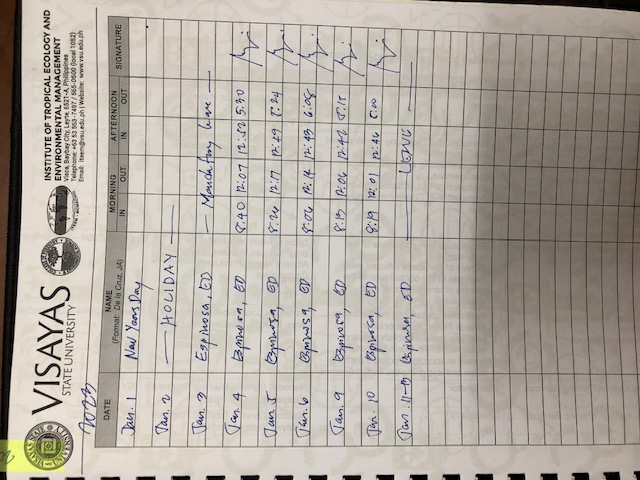 VISAYAS
STATE UNIVERSITY
INSTITUTE OF TROPICAL ECOLOGY AND
ENVIRONMENTAL MANAGEMENT
Visca, Baybay City, Leyte, 6521-A, Philippines
Telephone: +63 53 563-7497 / 565-0600 (local 1052)
Email: iteem@vsu.edu.ph | Website: www.vsu.edu.ph
2023
DATE NAME (Format: De la Cruz, JA) MORNING IN OUT AFTERNOON IN OUT SIGNATURE
Jan. 1 New Years Day
Jan. 2 — HOLIDAY —
Jan. 3 Espinosa, ED — Mandatory leave —
Jan. 4 Espinosa, ED 8:40 12:07 12:52 5:30
Jan. 5 Espinosa, ED 8:26 12:17 12:29 5:24
Jan. 6 Espinosa, ED 8:06 12:14 12:43 6:05
Jan. 9 Espinosa, ED 8:13 12:06 12:42 5:15
Jan. 10 Espinosa, ED 8:19 12:01 12:46 5:00
Jan. 11-13 Espinosa ED — LEAVE —